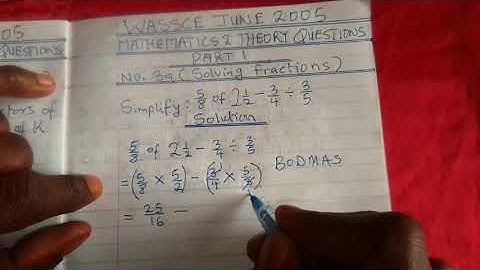 005
QUESTIONS
ctors of
of K
WASSCE JUNE 2005
MATHEMATICS 2 THEORY QUESTIONS
PART 1
No. 3a (Solving Fractions)
Simplify: 5/8 of 2 1/2 - 3/4 ÷ 3/5
Solution
5/8 of 2 1/2 - 3/4 ÷ 3/5
= (5/8 × 5/2) - (3/4 × 5/3) BODMAS
= 25/16 -